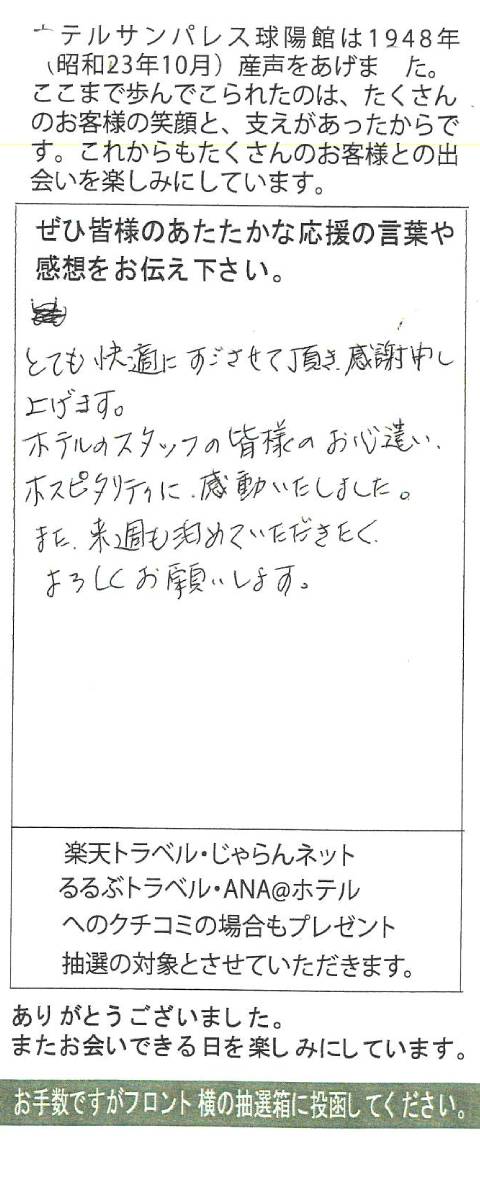 ホテルサンパレス球陽館は1948年
（昭和23年10月）産声をあげま た。
ここまで歩んでこられたのは、たくさん
のお客様の笑顔と、支えがあったからで
す。これからもたくさんのお客様との出
会いを楽しみにしています。
ぜひ皆様のあたたかな応援の言葉や
感想をお伝え下さい。
とても快適にすごさせて頂き、感謝申し
上げます。
ホテルのスタッフの皆様のお心遣い、
ホスピタリティに、感動いたしました。
また、来週も泊めていただきたく、
よろしくお願いします。
楽天トラベル・じゃらんネット
るるぶトラベル・ANA@ホテル
へのクチコミの場合もプレゼント
抽選の対象とさせていただきます。
ありがとうございました。
またお会いできる日を楽しみにしています。
お手数ですがフロント横の抽選箱に投函してください。